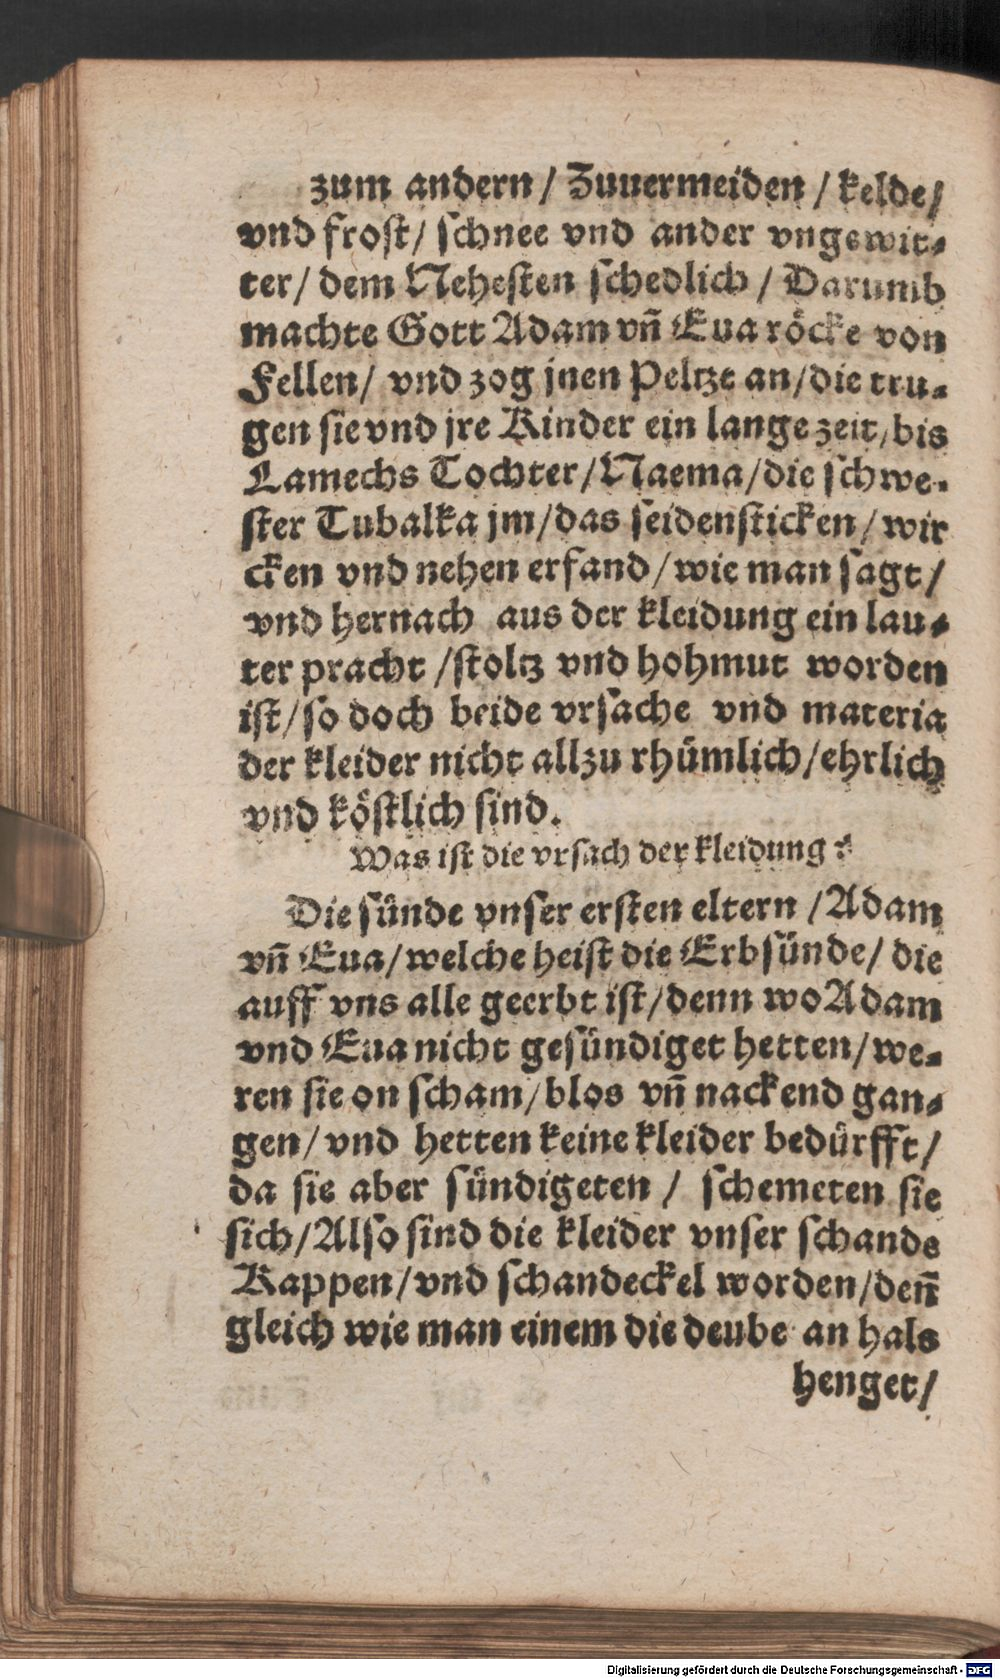 zum andern / Zuuermeiden / kelde /
vnd frost / schnee vnd ander vngewit⸗
ter / dem Nehesten schedlich / Darumb
machte Gott Adam vn̄ Eua röcke von
Fellen / vnd zog jnen Peltze an / die tru⸗
gen sie vnd jre Kinder ein lange zeit / bis
Lamechs Tochter / Naema / die schwe⸗
ster Tubalka jm / das seidensticken / wir
cken vnd nehen erfand / wie man sagt /
vnd hernach aus der kleidung ein lau⸗
ter pracht / stoltz vnd hohmut worden
ist / so doch beide vrsache vnd materia
der kleider nicht allzu rhümlich / ehrlich
vnd köstlich sind.
Was ist die vrsach der kleidung?
Die sünde vnser ersten eltern / Adam
vn̄ Eua / welche heist die Erbsünde / die
auff vns alle geerbt ist / denn wo Adam
vnd Eua nicht gesündiget hetten / we⸗
ren sie on scham / blos vn̄ nackend gan⸗
gen / vnd hetten keine kleider bedürfft /
da sie aber sündigeten / schemeten sie
sich / Also sind die kleider vnser schande
Kappen / vnd schandeckel worden / den̄
gleich wie man einem die deube an hals
henget /
Digitalisierung gefördert durch die Deutsche Forschungsgemeinschaft - DFG